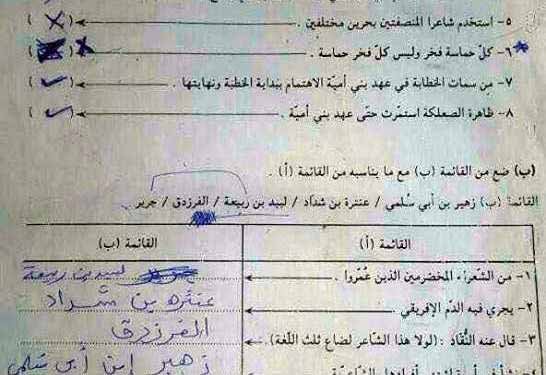 ٥- استخدم شاعرا المنصفتين بحرين مختلفين . (✗)
٦- كلّ حماسة فخر وليس كلّ فخر حماسة . ✗
٧- من سمات الخطابة في عهد بني أميّة الاهتمام ببداية الخطبة ونهايتها . (✓)
٨- ظاهرة الصعلكة استمرّت حتّى عهد بني أميّة . (✓)
(ب) ضع من القائمة (ب) مع ما يناسبه من القائمة (أ) .
القائمة (ب) زهير بن أبي سُلمي / عنترة بن شدّاد / لبيد بن ربيعة / الفرزدق / جرير
القائمة (أ) القائمة (ب)
١- من الشعراء المخضرمين الذين عُمّروا . لبيد بن ربيعة
٢- يجري فيه الدّم الإفريقي عنتره بن شداد
٣- قال عنه النُّقّاد : (لولا هذا الشّاعر لضاع ثلث اللّغة) . الفرزدق
زهير ابن أبي سلمى